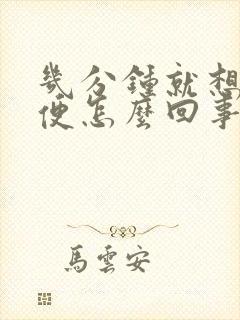 幾分鍾就想
便怎麼回事
馬雲安